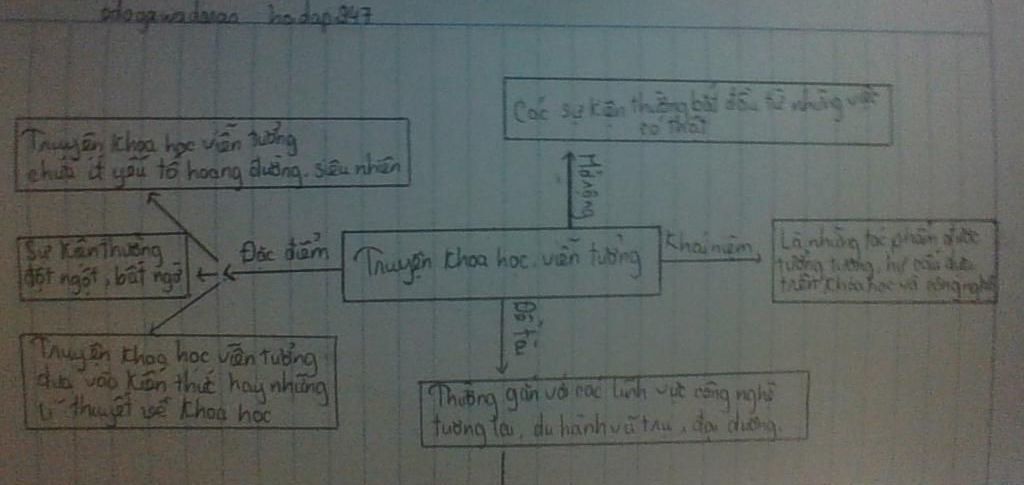 odogawadaraa hodap247
Các sự kiện thường bắt đầu từ những việc
có thật
Truyện khoa học viễn tưởng
chứa ít yếu tố hoang đường, siêu nhiên
Mở rộng
Sự kiện thường
đột ngột, bất ngờ
Đặc điểm
Truyện khoa học viễn tưởng
Khái niệm
Là những tác phẩm được
tưởng tượng, hư cấu dựa
trên khoa học và công nghệ
Đề tài
Truyện khoa học viễn tưởng
dựa vào kiến thức hay những
lí thuyết về khoa học
Thường gắn với các lĩnh vực công nghệ
tương lai, du hành vũ trụ, đại dương.